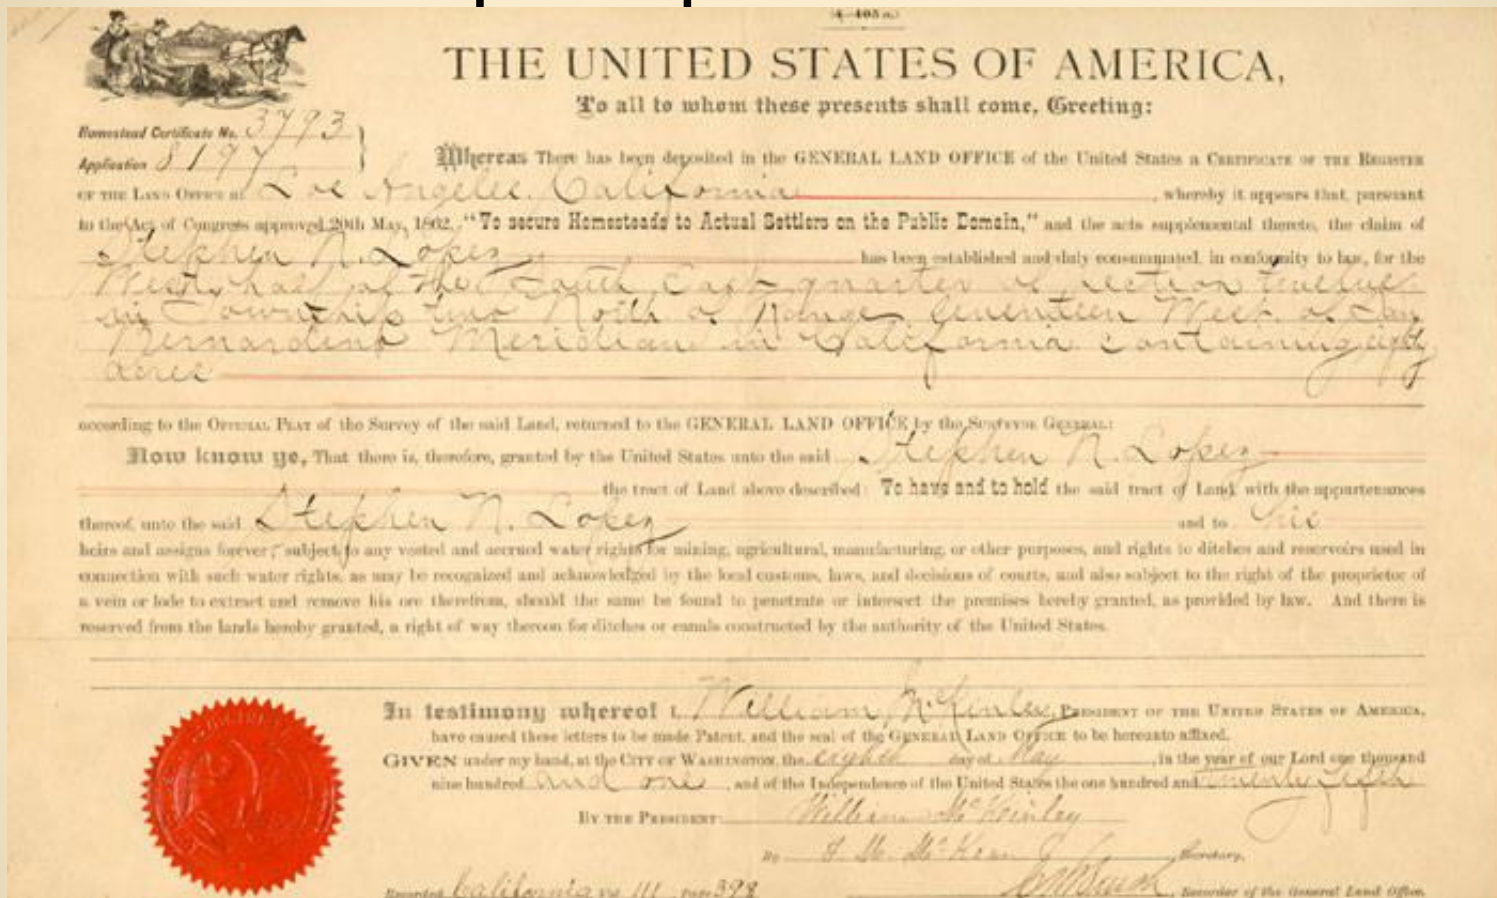 (4-403 a.)
THE UNITED STATES OF AMERICA,
To all to whom these presents shall come, Greeting:
Homestead Certificate No. 3793
Application 8197
Whereas There has been deposited in the GENERAL LAND OFFICE of the United States a CERTIFICATE OF THE REGISTER
OF THE LAND OFFICE at Los Angeles, California, whereby it appears that, pursuant
to the Act of Congress approved 20th May, 1862, "To secure Homesteads to Actual Settlers on the Public Domain," and the acts supplemental thereto, the claim of
Stephen N. Lopez has been established and duly consummated, in conformity to law, for the
West half of the South East quarter of section twelve
in Township two North of Range seventeen West of San
Bernardino Meridian in California containing eighty
acres
according to the OFFICIAL PLAT of the Survey of the said Land, returned to the GENERAL LAND OFFICE by the SURVEYOR GENERAL:
Now know ye, That there is, therefore, granted by the United States unto the said Stephen N. Lopez
the tract of Land above described: To have and to hold the said tract of Land, with the appurtenances
thereof, unto the said Stephen N. Lopez and to his
heirs and assigns forever; subject to any vested and accrued water rights for mining, agricultural, manufacturing, or other purposes, and rights to ditches and reservoirs used in
connection with such water rights, as may be recognized and acknowledged by the local customs, laws, and decisions of courts, and also subject to the right of the proprietor of
a vein or lode to extract and remove his ore therefrom, should the same be found to penetrate or intersect the premises hereby granted, as provided by law. And there is
reserved from the lands hereby granted, a right of way thereon for ditches or canals constructed by the authority of the United States.
In testimony whereof I, William McKinley, PRESIDENT OF THE UNITED STATES OF AMERICA,
have caused these letters to be made Patent, and the seal of the GENERAL LAND OFFICE to be hereunto affixed.
GIVEN under my hand, at the CITY OF WASHINGTON, the eighth day of May, in the year of our Lord one thousand
nine hundred and one, and of the Independence of the United States the one hundred and twenty fifth
BY THE PRESIDENT: William McKinley
By F. M. McKean, Secretary.
Recorded California Vol. 111 Page 398 , Recorder of the General Land Office.